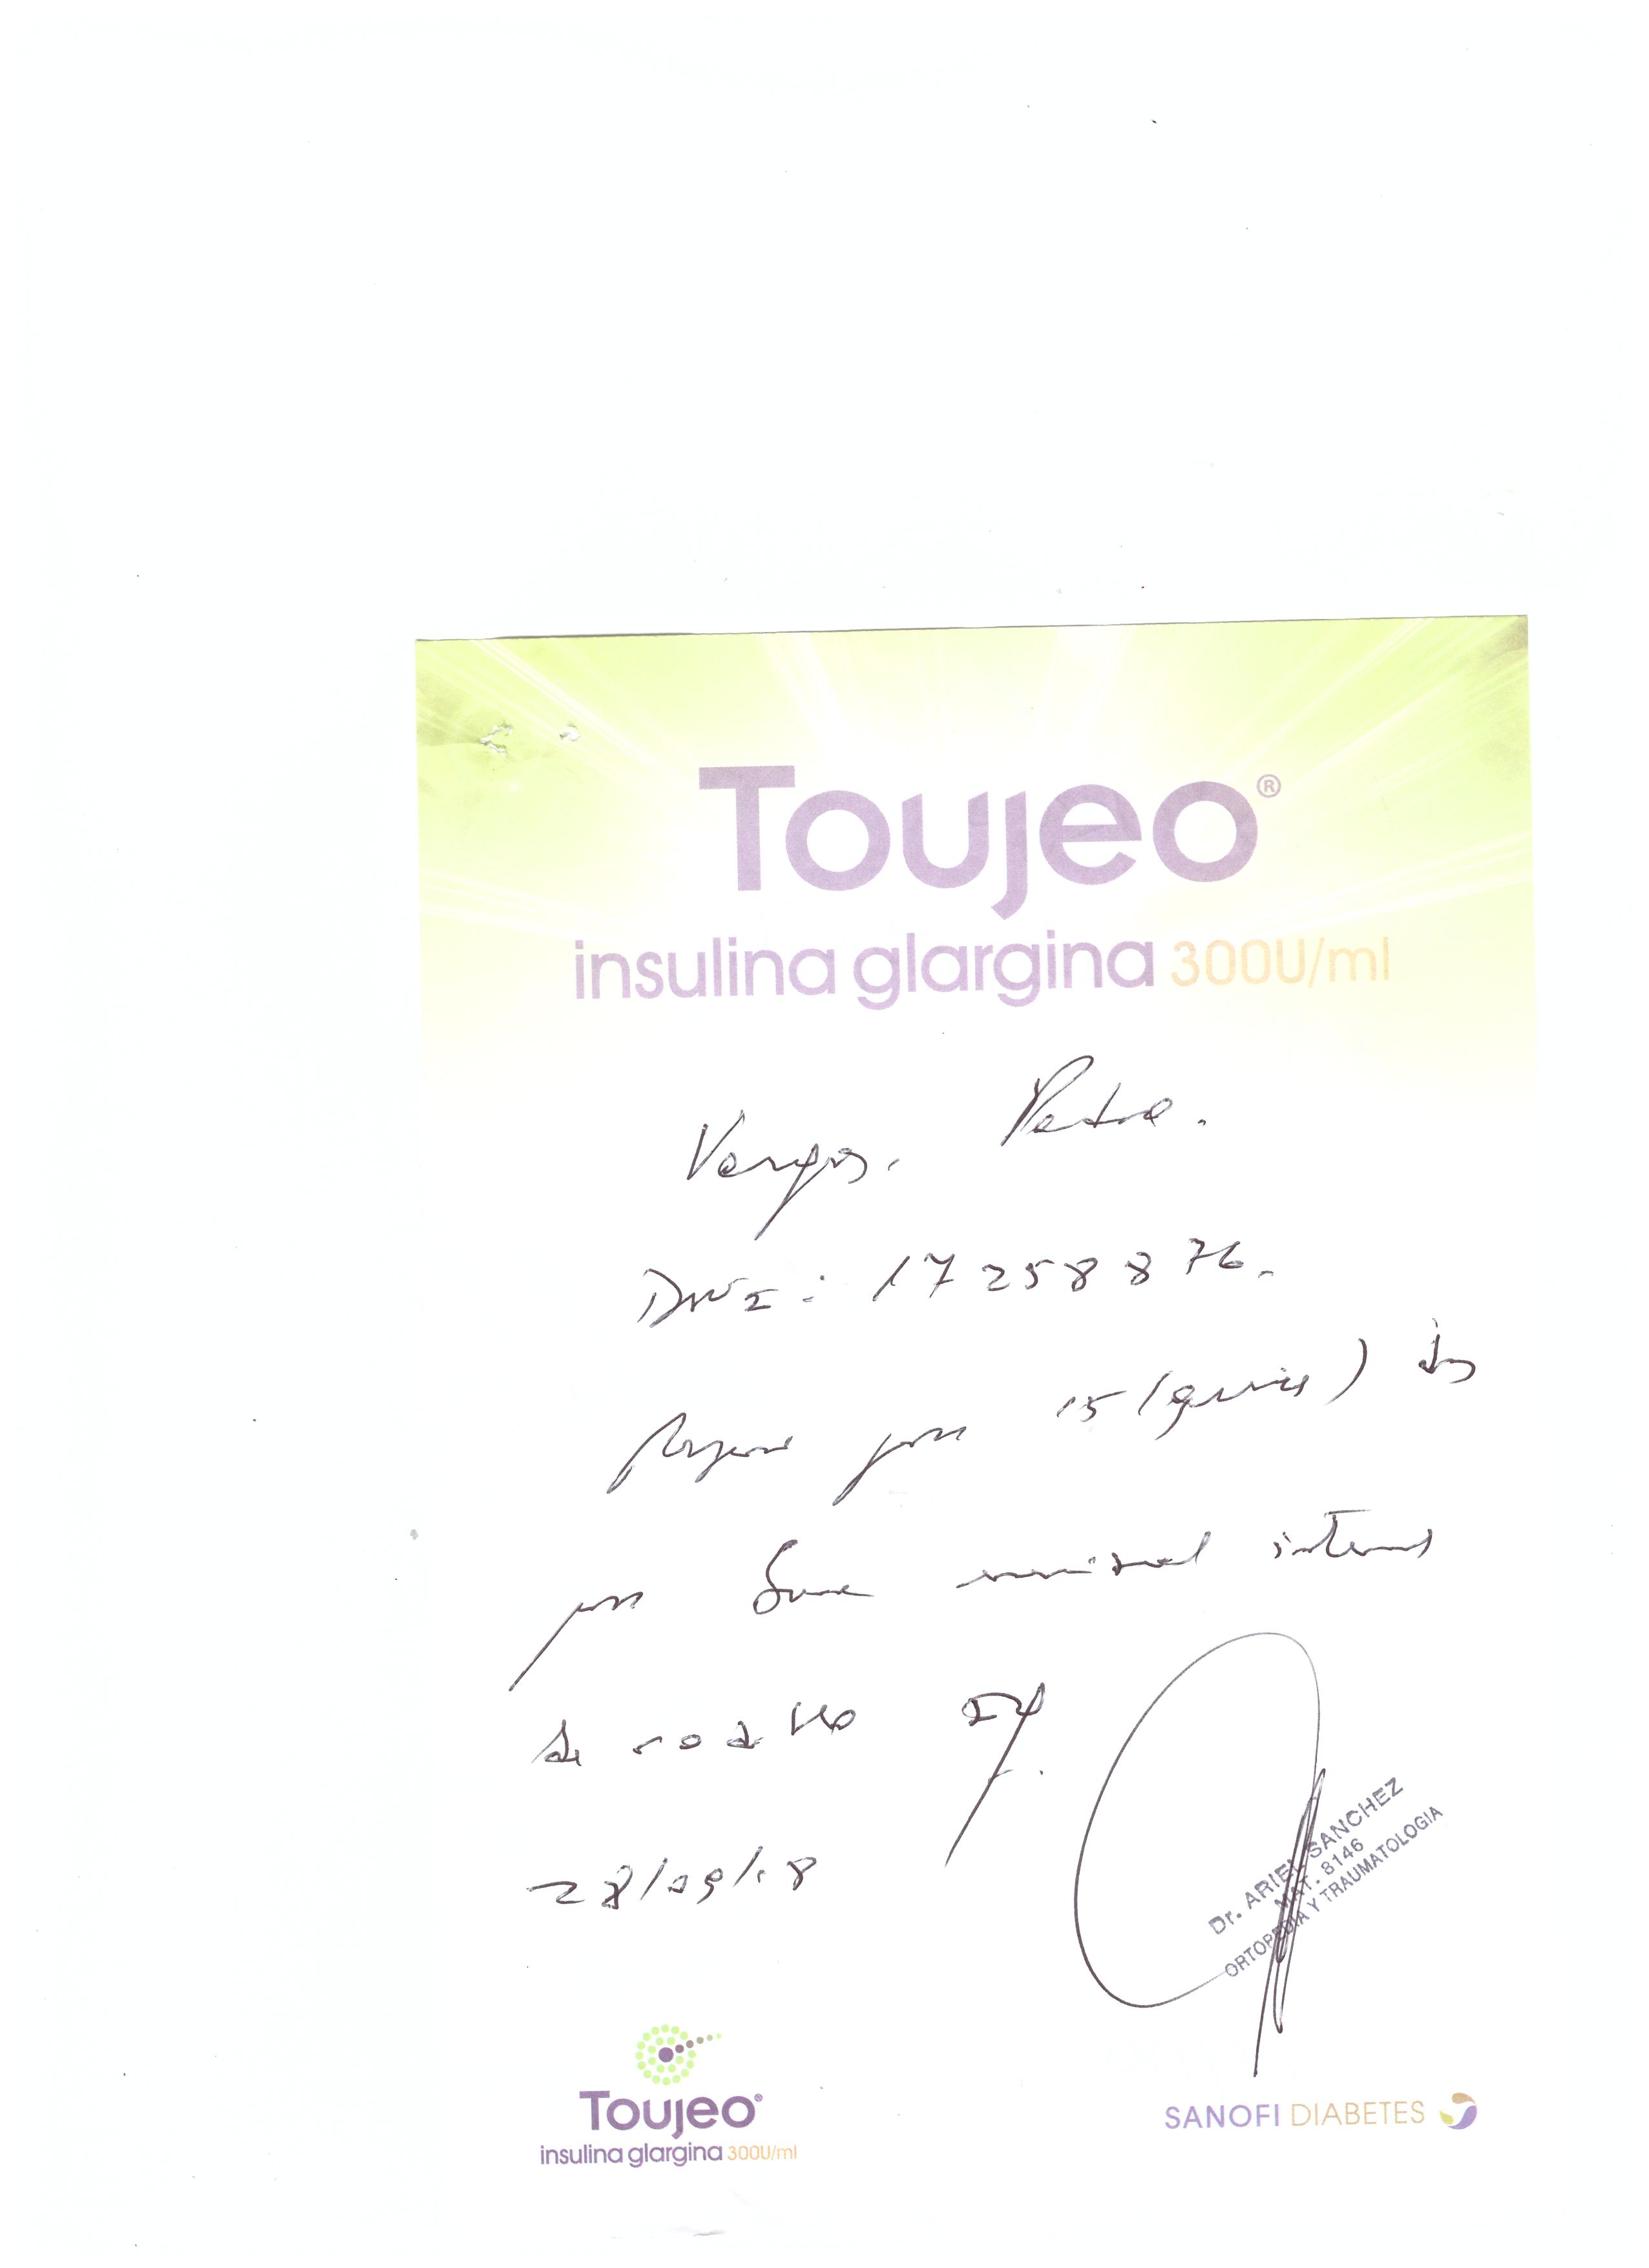 Toujeo®
insulina glargina 300U/ml
Vargas. Petra.
DNI: 17258876.
Reposo por 15 (quince) días
por meniscal interno
de rodilla
28/09/18
Dr. ARIEL SANCHEZ
MAT. 8146
ORTOPEDIA Y TRAUMATOLOGIA
Toujeo®
insulina glargina 300U/ml
SANOFI DIABETES